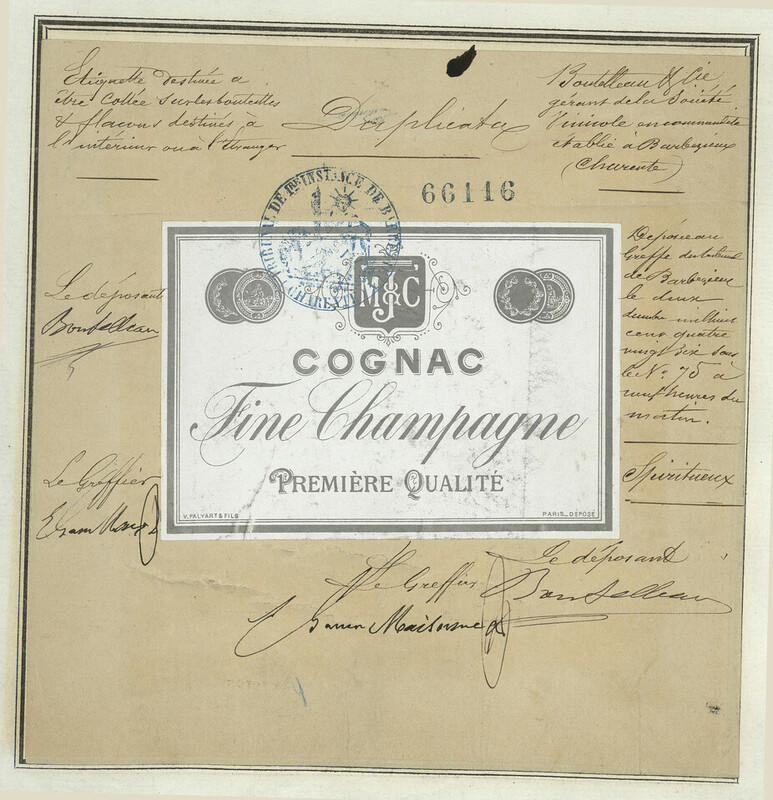 Etiquette destinée a
être collée sur les bouteilles
& flacons destinés à
l'intérieur ou a l'Etranger
Duplicata
Boutelleau & Cie
gérant de la Société
Vinicole en commandite
établie à Barbezieux
(Charente)
66116
TRIBUNAL DE 1re INSTANCE DE BARBEZIEUX
(CHARENTE)
Le déposant
Boutelleau
Le Greffier
M J & C
COGNAC
Fine Champagne
PREMIÈRE QUALITÉ
V. PALYART & FILS
PARIS_DÉPOSÉ
Déposé au
Greffe du tribunal
de Barbezieux
le deux
mil huit
cent quatre
vingt six sous
le No 75 à
neuf heures du
matin.
Spiritueux
Le Greffier
Le déposant
Boutelleau